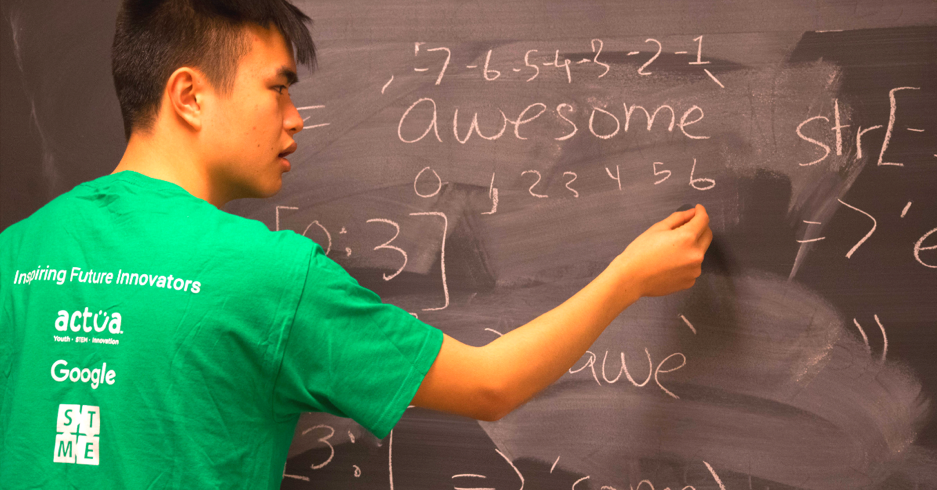 '-7 -6 -5 -4 -3 -2 -1
'awesome'
0 1 2 3 4 5 6
str[-
=> 'e
=
[0:3]
'awe'
3:[
=> '
Inspiring Future Innovators
actua
Youth · STEM · Innovation
Google
ST
ME